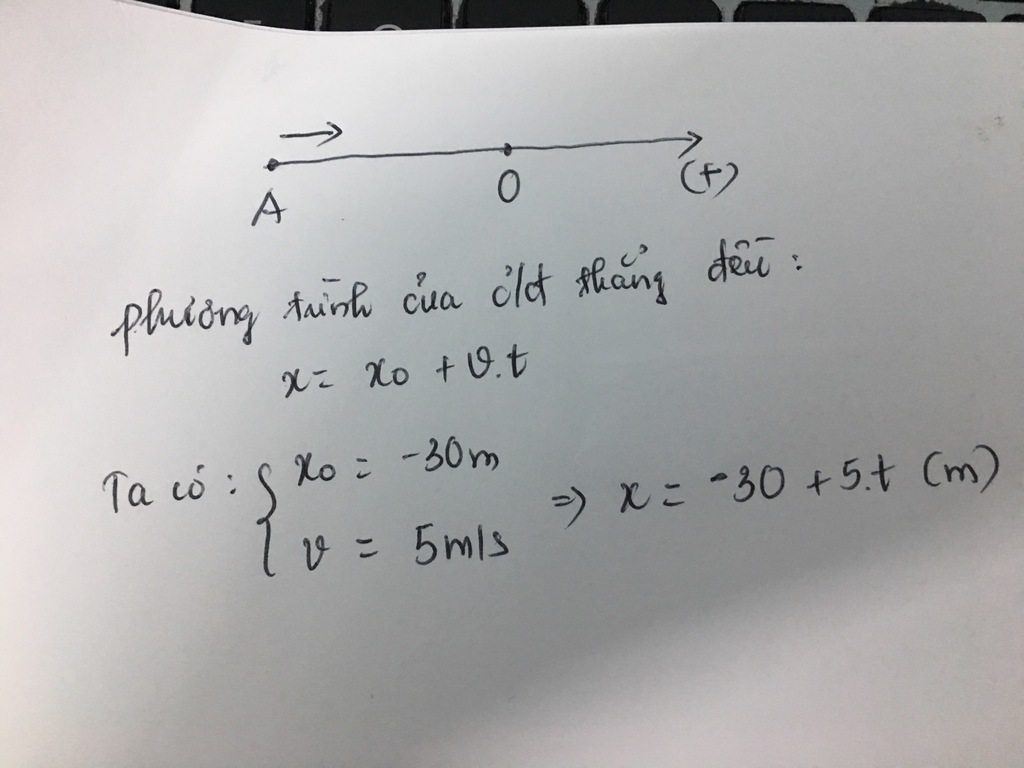 A O (+)
phương trình của c/đ thẳng đều:
x = x0 + v.t
Ta có: { x0 = -30m
v = 5m/s
=> x = -30 + 5.t (m)